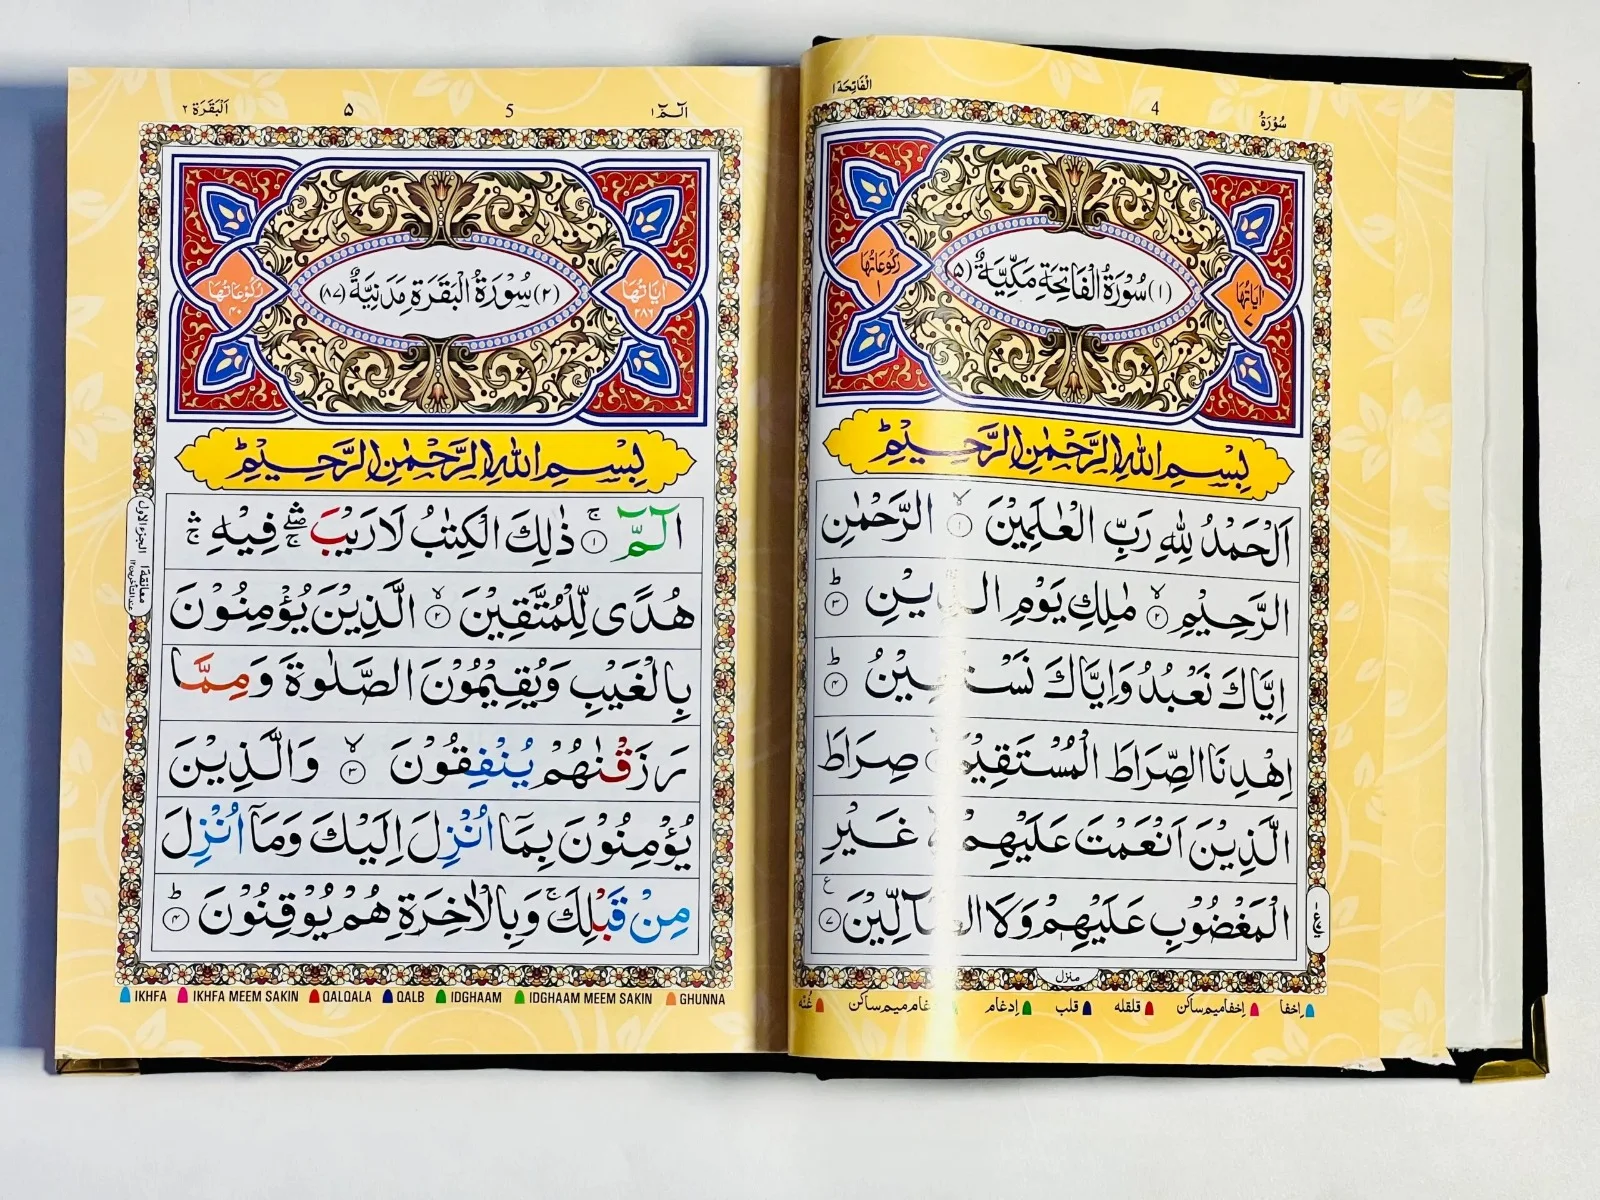 الْفَاتِحَة ١
4
سُوْرَةُ
اٰيَاتُهَا ٧
(١) سُوْرَةُ الْفَاتِحَةِ مَكِّيَّةٌ (٥)
رُكُوْعَاتُهَا ١
بِسْمِ اللّٰهِ الرَّحْمٰنِ الرَّحِيْمِ
اَلْحَمْدُ لِلّٰهِ رَبِّ الْعٰلَمِيْنَ ۙ‏ ١ الرَّحْمٰنِ
الرَّحِيْمِ ۙ‏ ٢ مٰلِكِ يَوْمِ الدِّيْنِ ؕ‏ ٣
اِيَّاكَ نَعْبُدُ وَاِيَّاكَ نَسْتَعِيْنُ ؕ‏ ٤
اِهْدِنَا الصِّرَاطَ الْمُسْتَقِيْمَ صِرَاطَ
الَّذِيْنَ اَنْعَمْتَ عَلَيْهِمْ غَيْرِ
الْمَغْضُوْبِ عَلَيْهِمْ وَلَا الضَّآلِّيْنَ ٧ ع
منزل
إخفا إخفا ميم ساكن قلقله قلب إدغام إدغام ميم ساكن غنه
الٓمّٓ ١
5
٥
اَلْبَقَرَة ٢
اٰيَاتُهَا ٢٨٦
(٢) سُوْرَةُ الْبَقَرَةِ مَدَنِيَّةٌ (٨٧)
رُكُوْعَاتُهَا ٤٠
بِسْمِ اللّٰهِ الرَّحْمٰنِ الرَّحِيْمِ
الٓمّٓ ۚ‏ ١ ذٰلِكَ الْكِتٰبُ لَا رَيْبَ ۛۖۚ فِيْهِ ۛۚ
هُدًى لِّلْمُتَّقِيْنَ ۙ‏ ٢ الَّذِيْنَ يُؤْمِنُوْنَ
بِالْغَيْبِ وَيُقِيْمُوْنَ الصَّلٰوةَ وَمِمَّا
رَزَقْنٰهُمْ يُنْفِقُوْنَ ۙ‏ ٣ وَالَّذِيْنَ
يُؤْمِنُوْنَ بِمَآ اُنْزِلَ اِلَيْكَ وَمَآ اُنْزِلَ
مِنْ قَبْلِكَ ۚ وَبِالْاٰخِرَةِ هُمْ يُوْقِنُوْنَ ؕ‏ ٤
الجزء الاول
معانقة ١
عند المتأخرين ١٢
IKHFA IKHFA MEEM SAKIN QALQALA QALB IDGHAAM IDGHAAM MEEM SAKIN GHUNNA